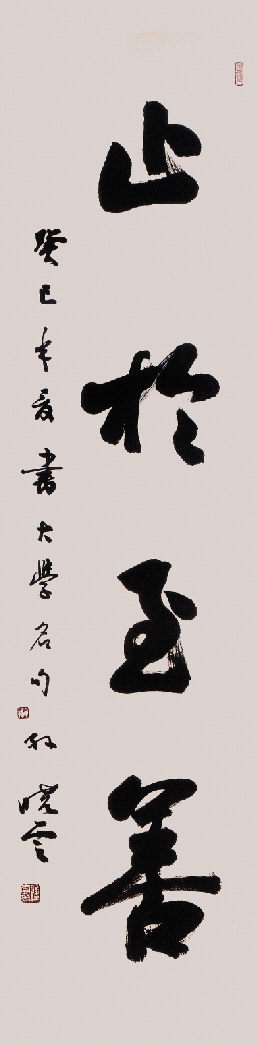 止於至善
癸巳年夏書大學名句孫曉雲